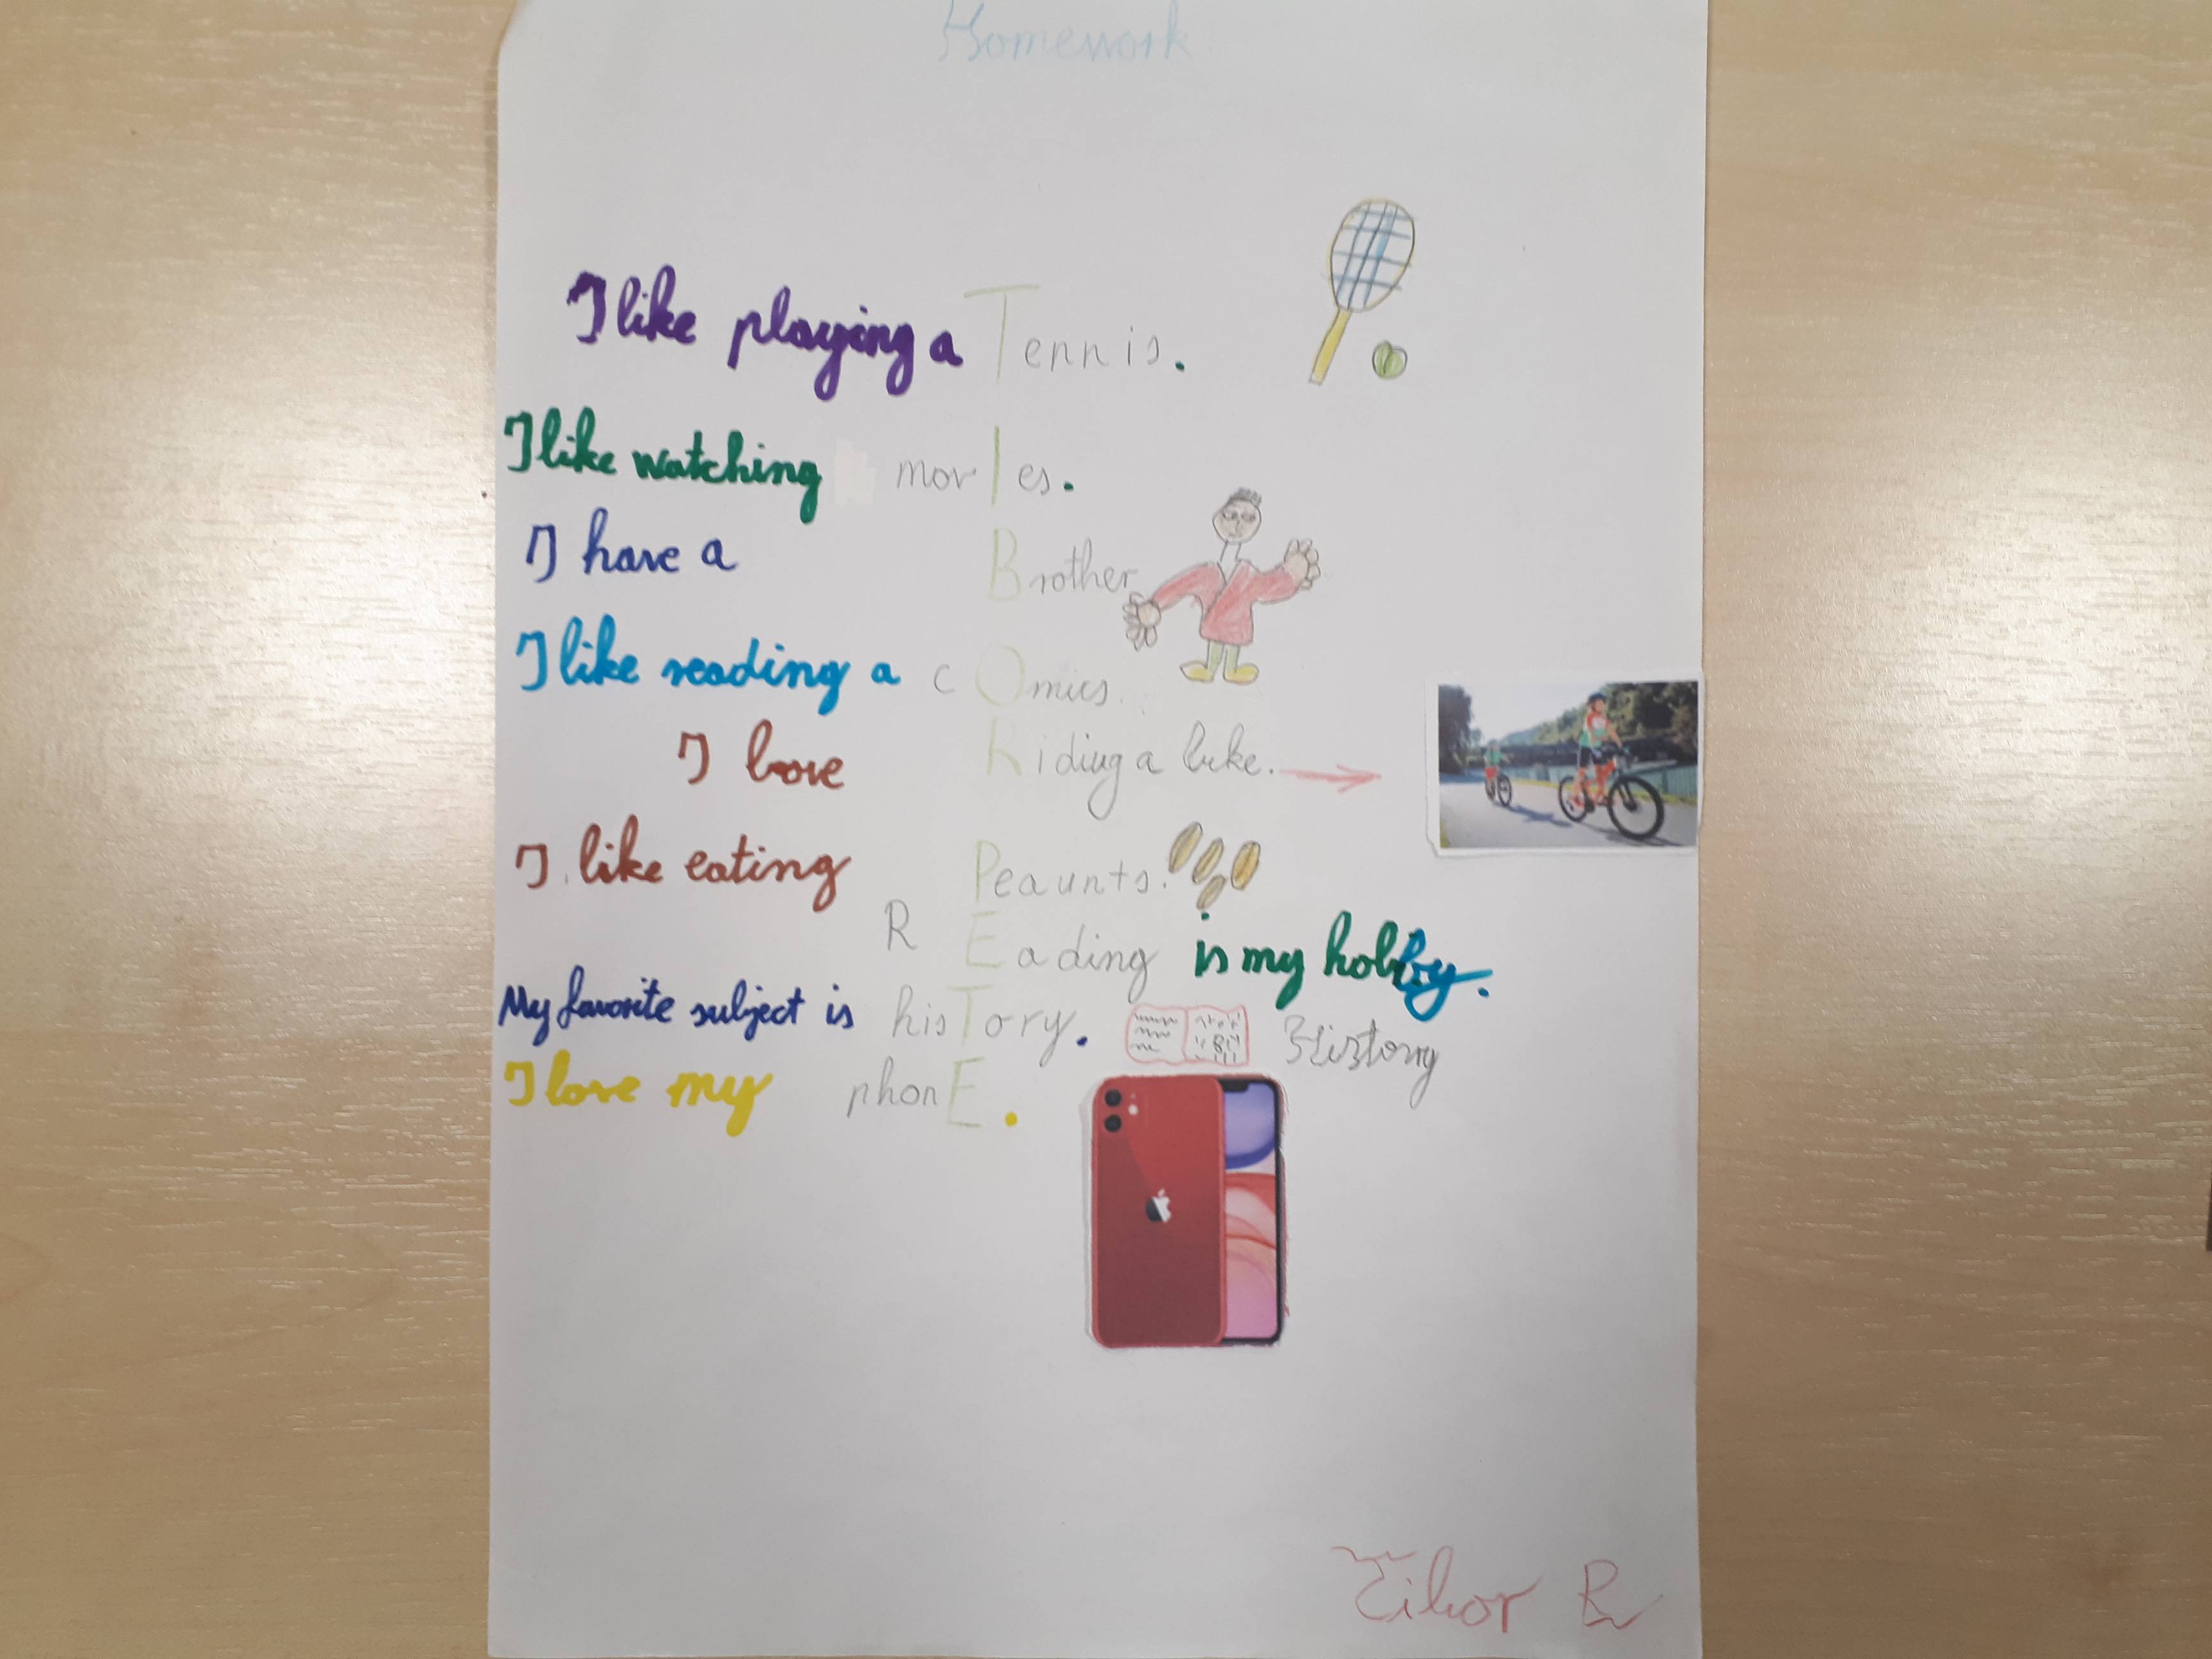 Homework
I like playing a Tennis.
I like watching movIes.
I have a Brother
I like reading a cOmics.
I love Riding a bike.
I like eating Peaunts.
REading is my hobby.
My favorite subject is hisTory. History
I love my phonE.
Tibor R